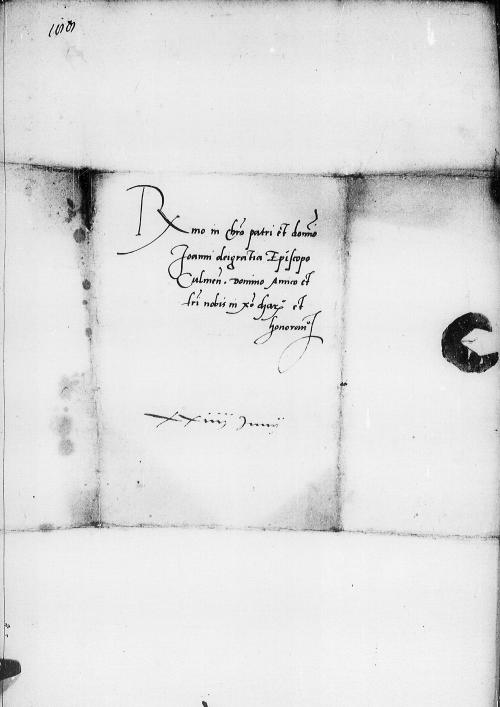 Rxmo in chro patri et domio
Joanni dei gratia Episcopo
Culmeñ. Domino Amico et
fri nobis in xo char.º et
honoranº
xxiiij Junij